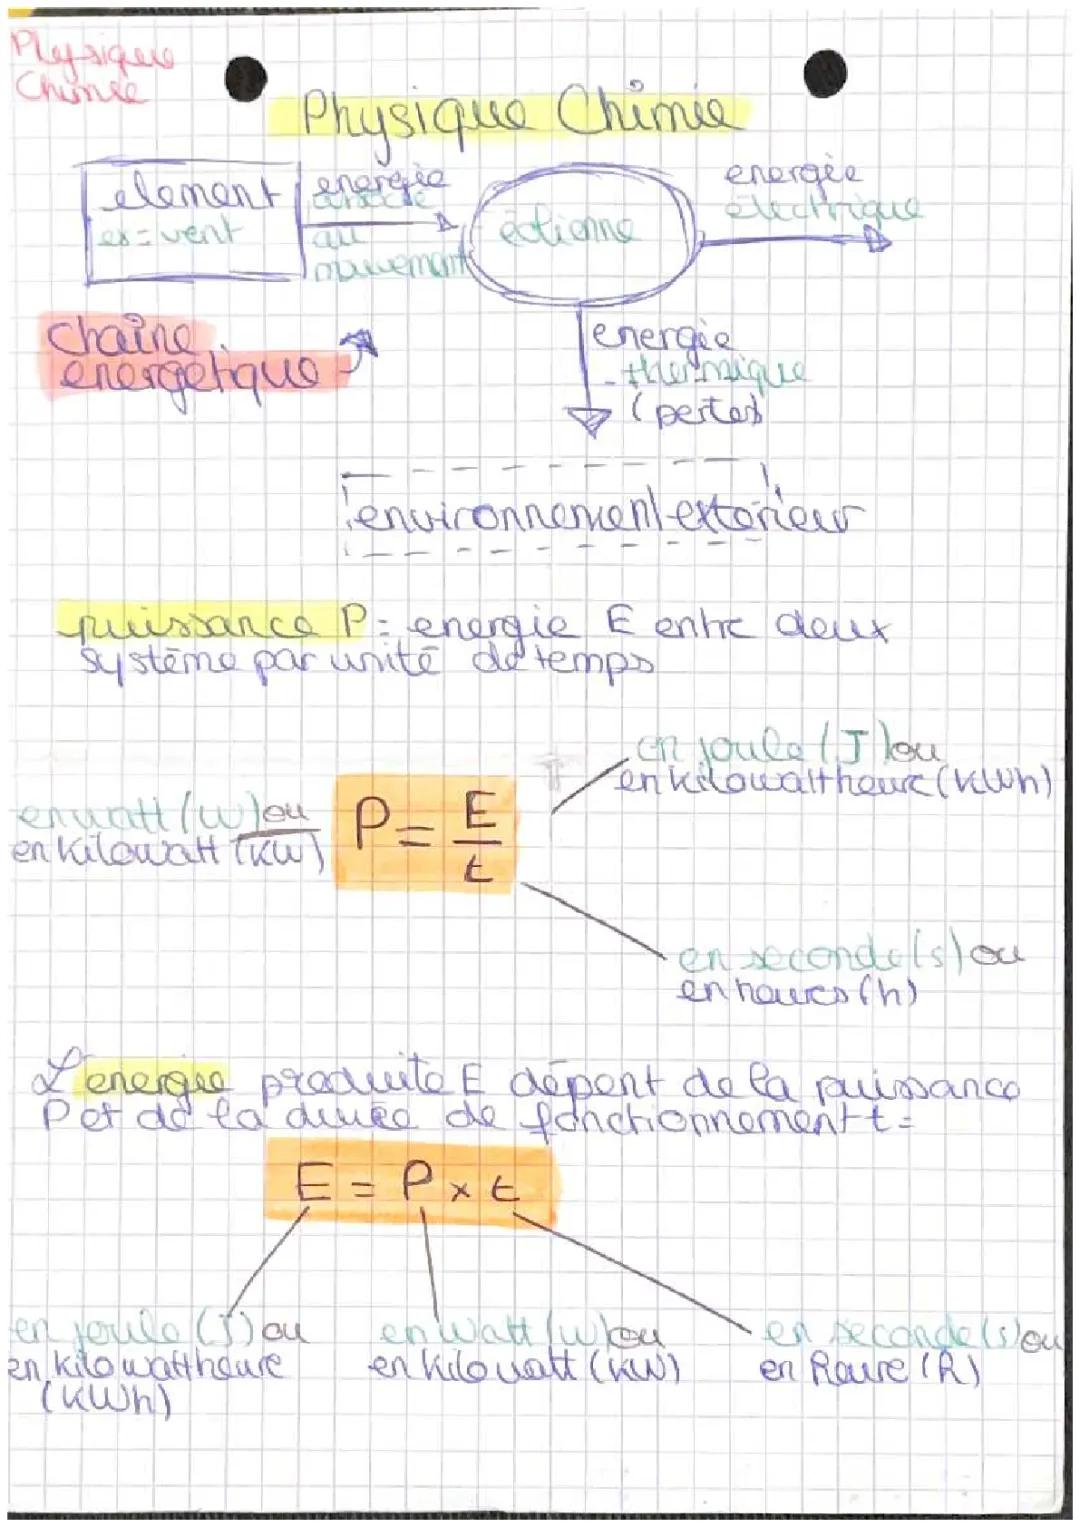 Physique
Chimie
Physique Chimie
element
ex = vent
energie
associé
au
mouvement
éolienne
energie
électrique
chaîne
energetique
energie
thermique
(pertes)
environnement exterieur
puissance P = energie E entre deux
système par unité de temps
en joule (J) ou
en kilowattheure (kWh)
en watt (w) ou
en kilowatt (kW)
P = E
t
en seconde (s) ou
en heures (h)
L'energie produite E dépent de la puissance
P et de la durée de fonctionnement t =
E = P x t
en joule (J) ou
en kilowattheure
(kWh)
en watt (w) ou
en kilowatt (kW)
en seconde (s) ou
en heure (h)